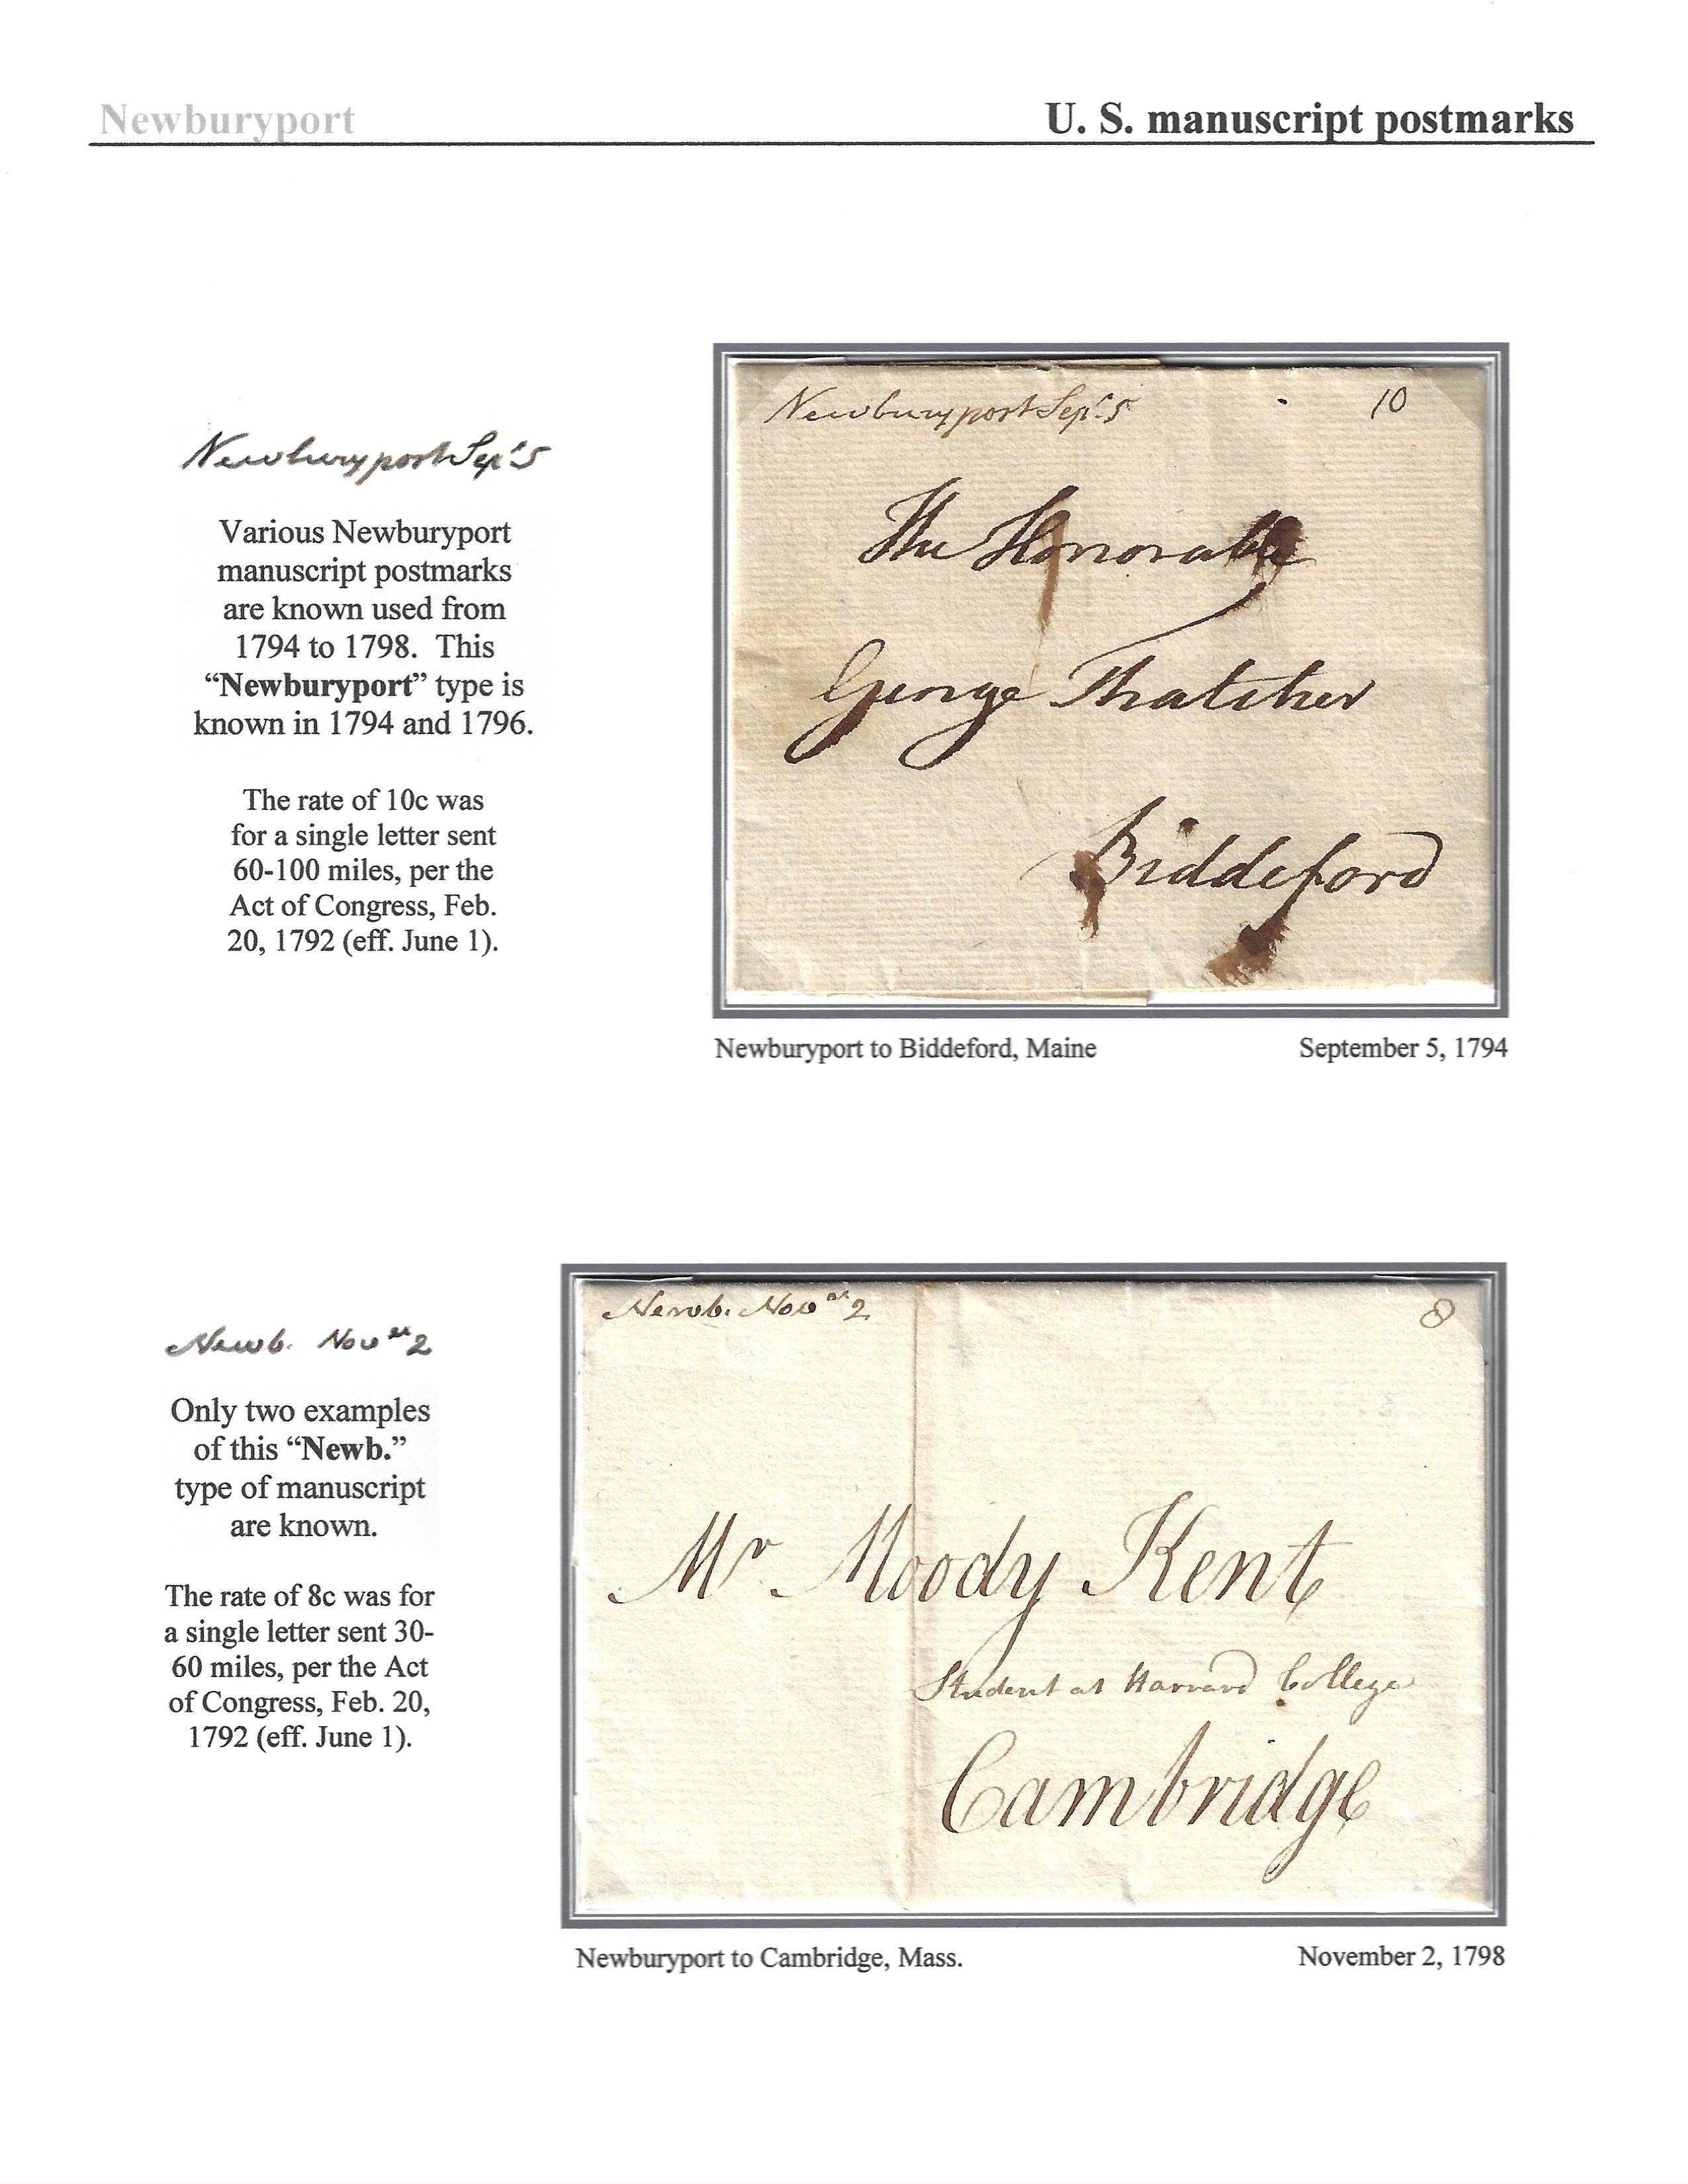 Newburyport
U. S. manuscript postmarks
Newburyport Sept. 5
Various Newburyport
manuscript postmarks
are known used from
1794 to 1798. This
“Newburyport” type is
known in 1794 and 1796.
The rate of 10c was
for a single letter sent
60-100 miles, per the
Act of Congress, Feb.
20, 1792 (eff. June 1).
Newburyport Sept. 5
10
The Honorable
George Thatcher
Biddeford
Newburyport to Biddeford, Maine
September 5, 1794
Newb. Nov er 2
Only two examples
of this “Newb.”
type of manuscript
are known.
The rate of 8c was for
a single letter sent 30-
60 miles, per the Act
of Congress, Feb. 20,
1792 (eff. June 1).
Newb. Nov er 2
8
Mr. Moody Kent
Student at Harvard College
Cambridge
Newburyport to Cambridge, Mass.
November 2, 1798